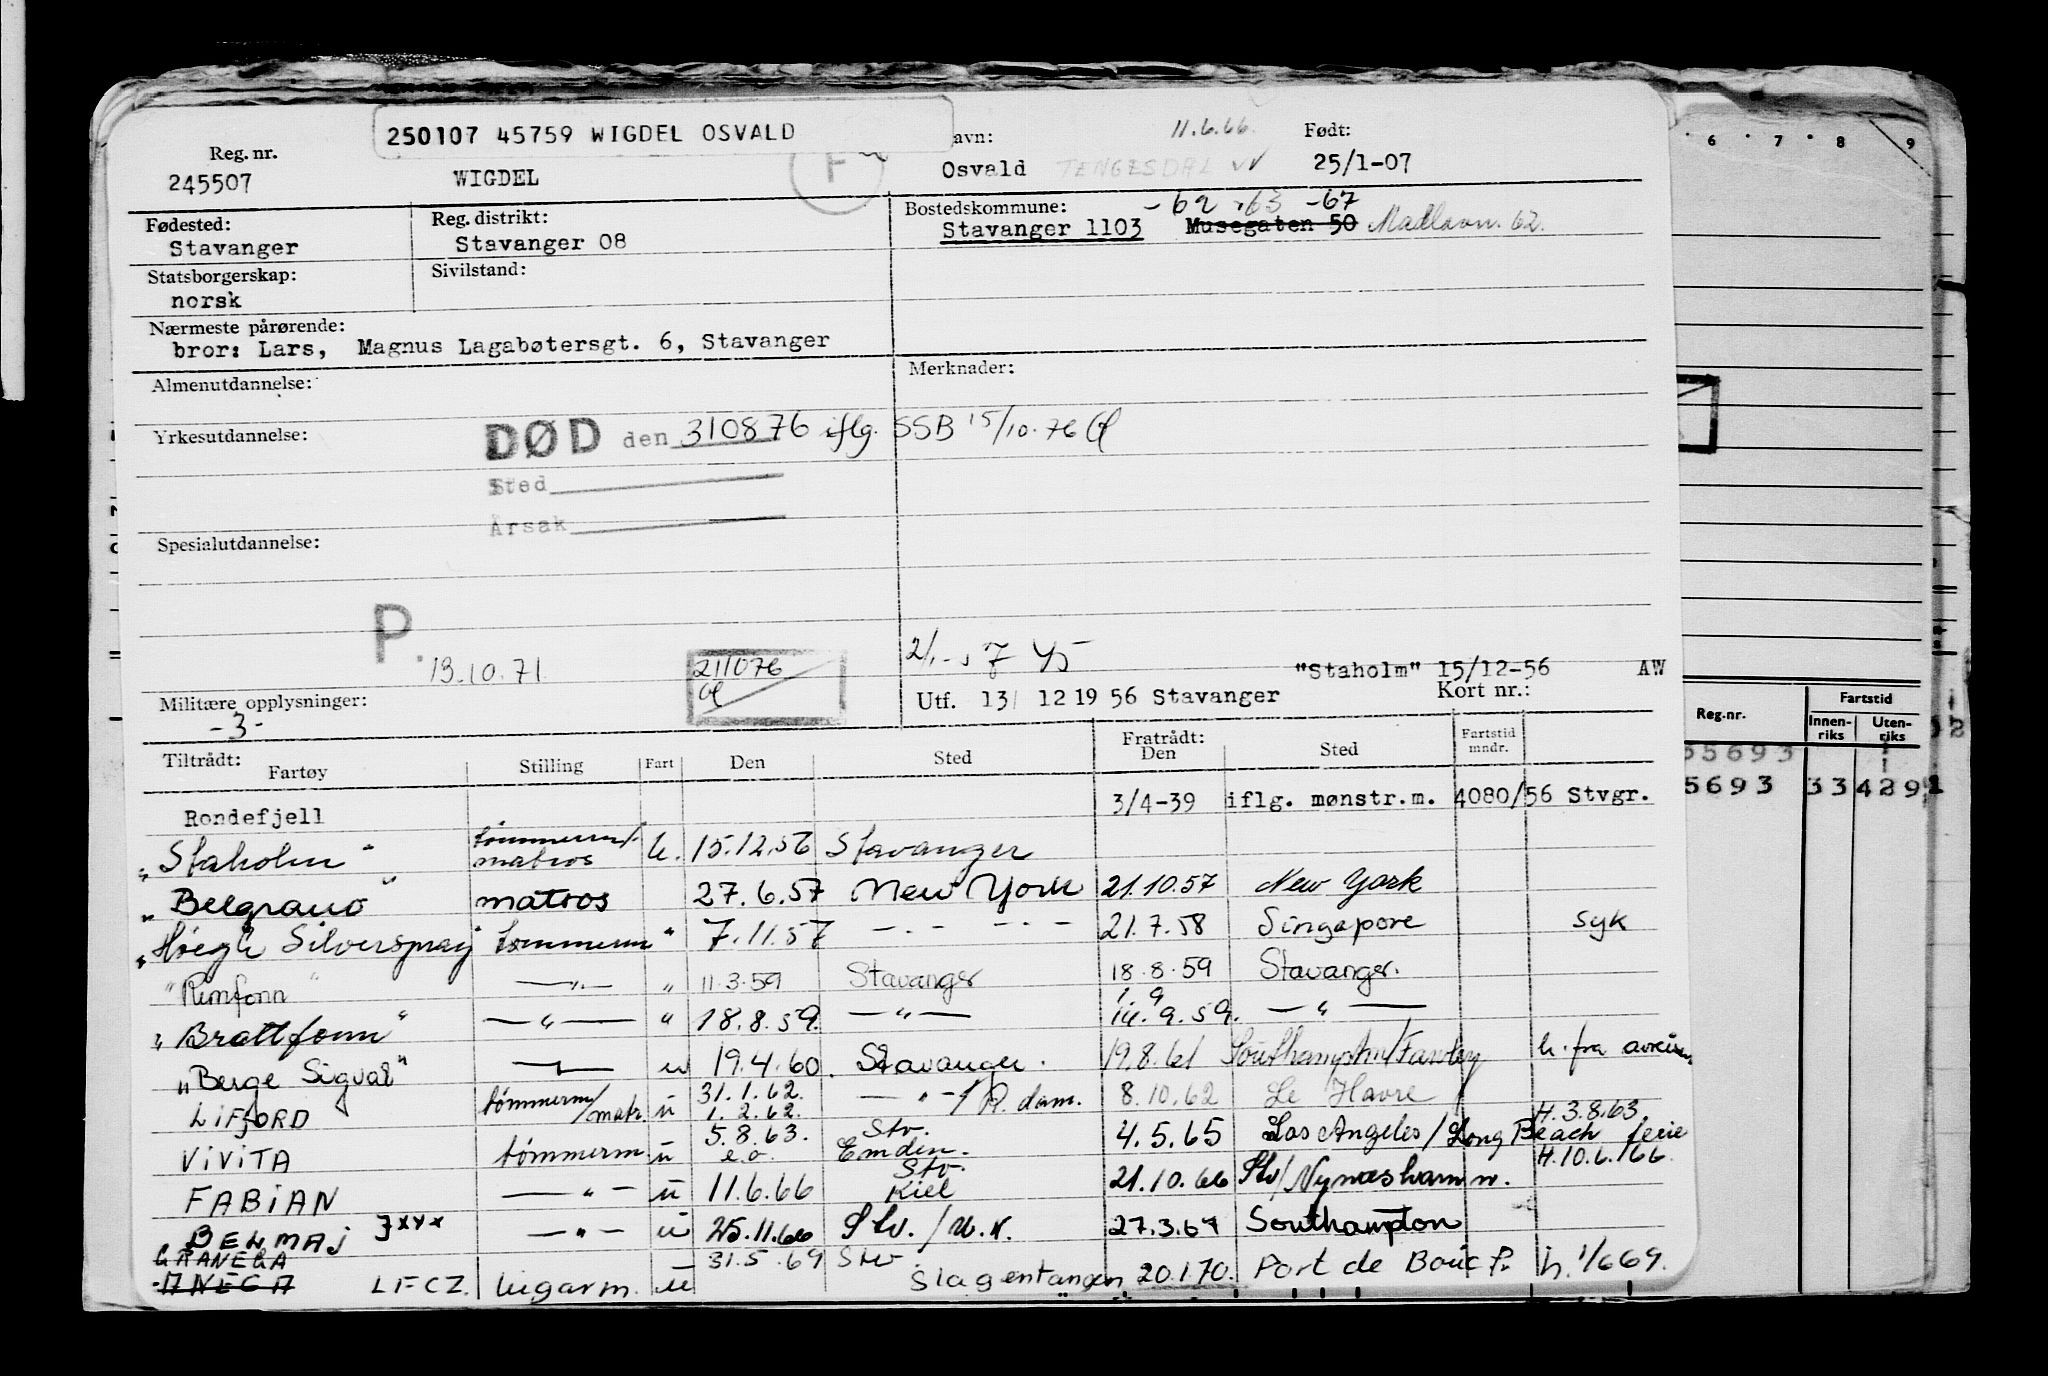 250107 45759 WIGDEL OSVALD
Reg. nr. avn: 11.6.66. Født:
245507 WIGDEL F Osvald TENGESDAL 25/1-07
Fødested: Reg. distrikt: Bostedskommune: -62 -63 -67
Stavanger Stavanger 08 Stavanger 1103 Musegaten 50 Madlavn. 62.
Statsborgerskap: Sivilstand:
norsk
Nærmeste pårørende:
bror: Lars, Magnus Lagabøtersgt. 6, Stavanger
Almenutdannelse: Merknader:
Yrkesutdannelse: DØD den 310876 iflg. SSB 15/10.76
Sted
Årsak
Spesialutdannelse:
P.
13.10.71 211076
"Staholm" 15/12-56 AW
Militære opplysninger: Utf. 13/ 12 19 56 Stavanger Kort nr.:
-3-
Tiltrådt: Fratrådt: Fartstid
Fartøy Stilling Fart Den Sted Den Sted mndr.
Rondefjell 3/4-39 iflg. mønstr.m. 4080/56 Stvgr.
"Staholm" tømmerm/matros u. 15.12.56 Stavanger
"Belgrano" matros 27.6.57 New York 21.10.57 New York
"Høegh Silverspray" tømmerm " 7.11.57 -"- -"- 21.7.58 Singapore syk
"Rimfonn" -"- " 11.3.59 Stavanger 18.8.59 Stavanger.
"Brattfonn" -"- " 18.8.59. -"- 14.9.59. -"-
"Berge Sigval" -"- u 19.4.60. Stavanger. 19.8.61 Southampton/Fawley h. fra
LIFJORD tømmerm/matr. u 31.1.62. 1.2.62. -"-/R.dam. 8.10.62 Le Havre
VIVITA tømmerm. u 5.8.63. e.o. Stv. Emden. 4.5.65 Los Angeles/Long Beach H. 3.8.63. ferie
FABIAN -"- u 11.6.66 Stv. Kiel 21.10.66 Stv/Nynæshamn. H. 10.6.66.
"BELMAJ JXYX -"- u 25.11.66 Stv./u.r. 27.3.67 Southampton
GRANEGA
ANEGA LFCZ. lugarm. u 31.5.69 Stv. Slagentangen 20.1.70. Port de Bouc Fr. h. 1/669.
6 7 8 9
Reg.nr. Fartstid
Innen-riks Uten-riks
55693
5693 33 429